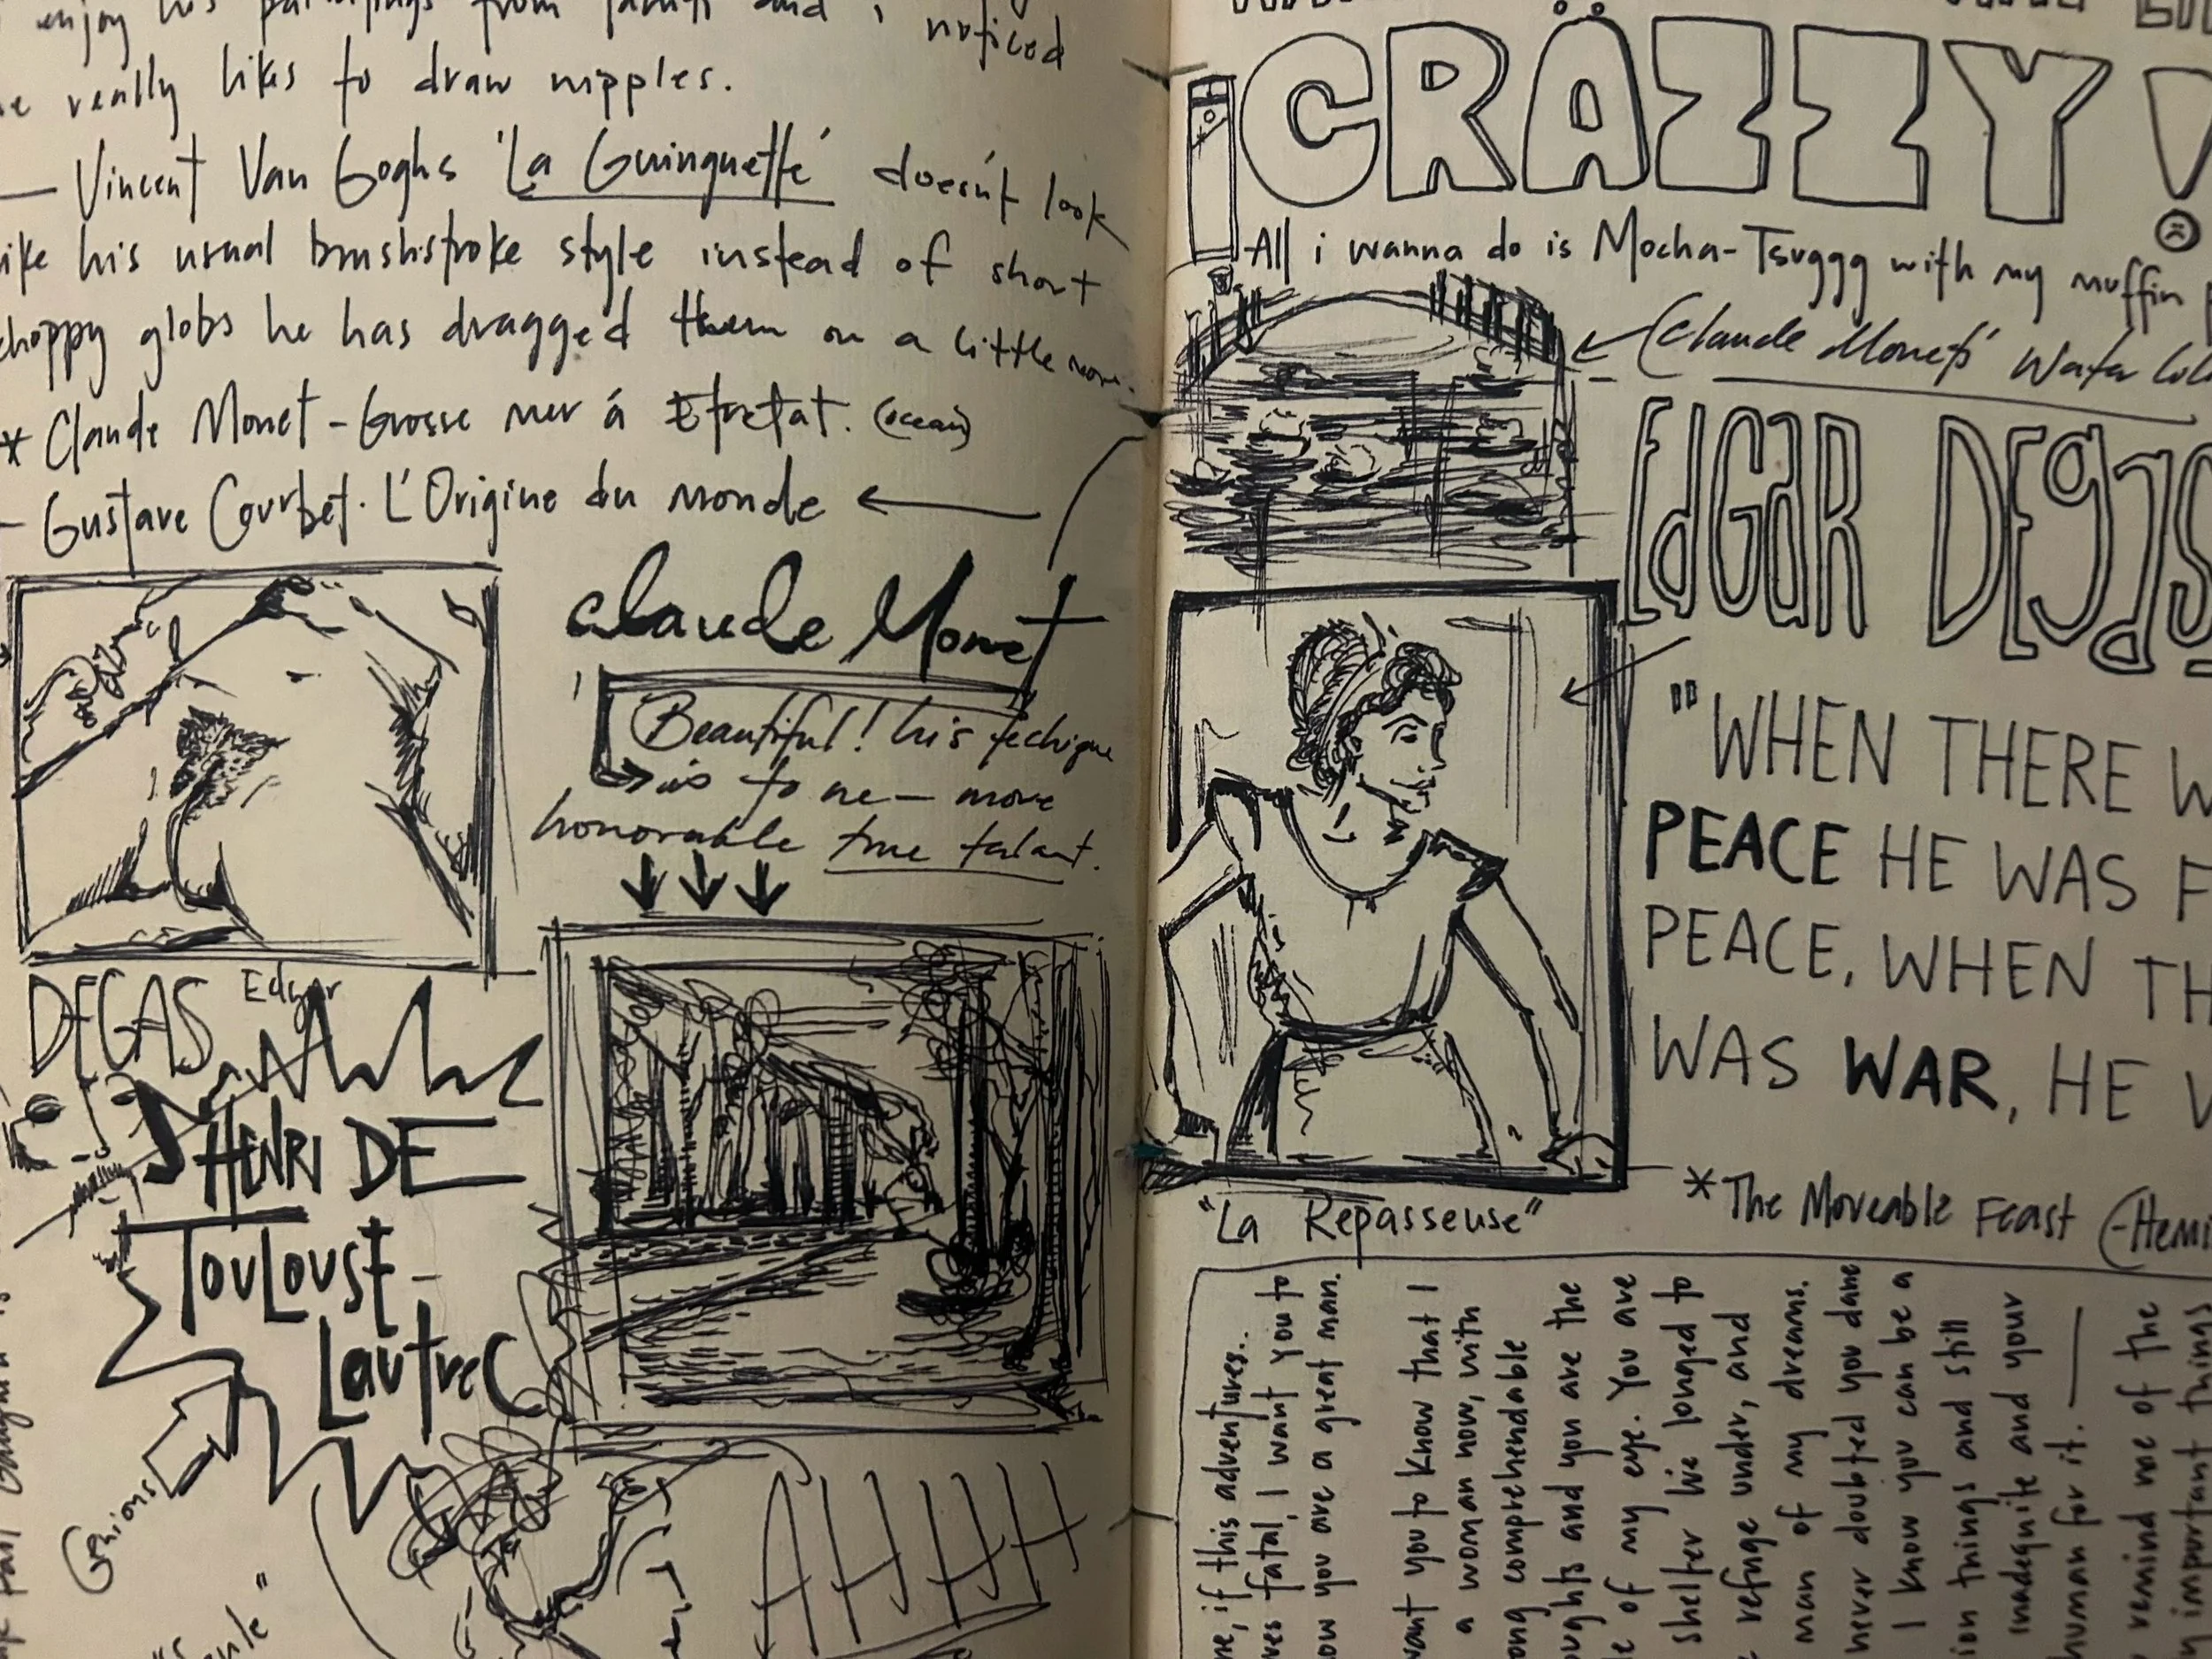 enjoy his paintings from and i noticed
really likes to draw nipples.
— Vincent Van Goghs 'La Guinguette' doesn't look
like his usual brushstroke style instead of short
choppy globs he has dragged them on a little more.
* Claude Monet - Grosse mer á Etretat. (ocean)
- Gustave Courbet. L'Origine du monde
Claude Monet
Beautiful! his techique
is to me — more
honorable true talant.
DEGAS Edgar
HENRI DE
TOULOUSE-
LauTrec
AHHH
CRÄZZY!
All i wanna do is Mocha-Tsuggg with my muffin
(Claude Monets' Water
EdGaR DEgas
"WHEN THERE W
PEACE HE WAS F
PEACE, WHEN TH
WAS WAR, HE
"La Repasseuse"
* The Moveable Feast (-Hemi
me, if this adventures.
fatal, I want you to
you are a great man.
want you to know that I
a woman now, with
comprehendable
and you are the
of my eye. You are
shelter I've longed to
refuge under, and
man of my dreams.
never doubted you dane
I know you can be a
things and still
inadequite and your
human for it. —
remind me of the
important things